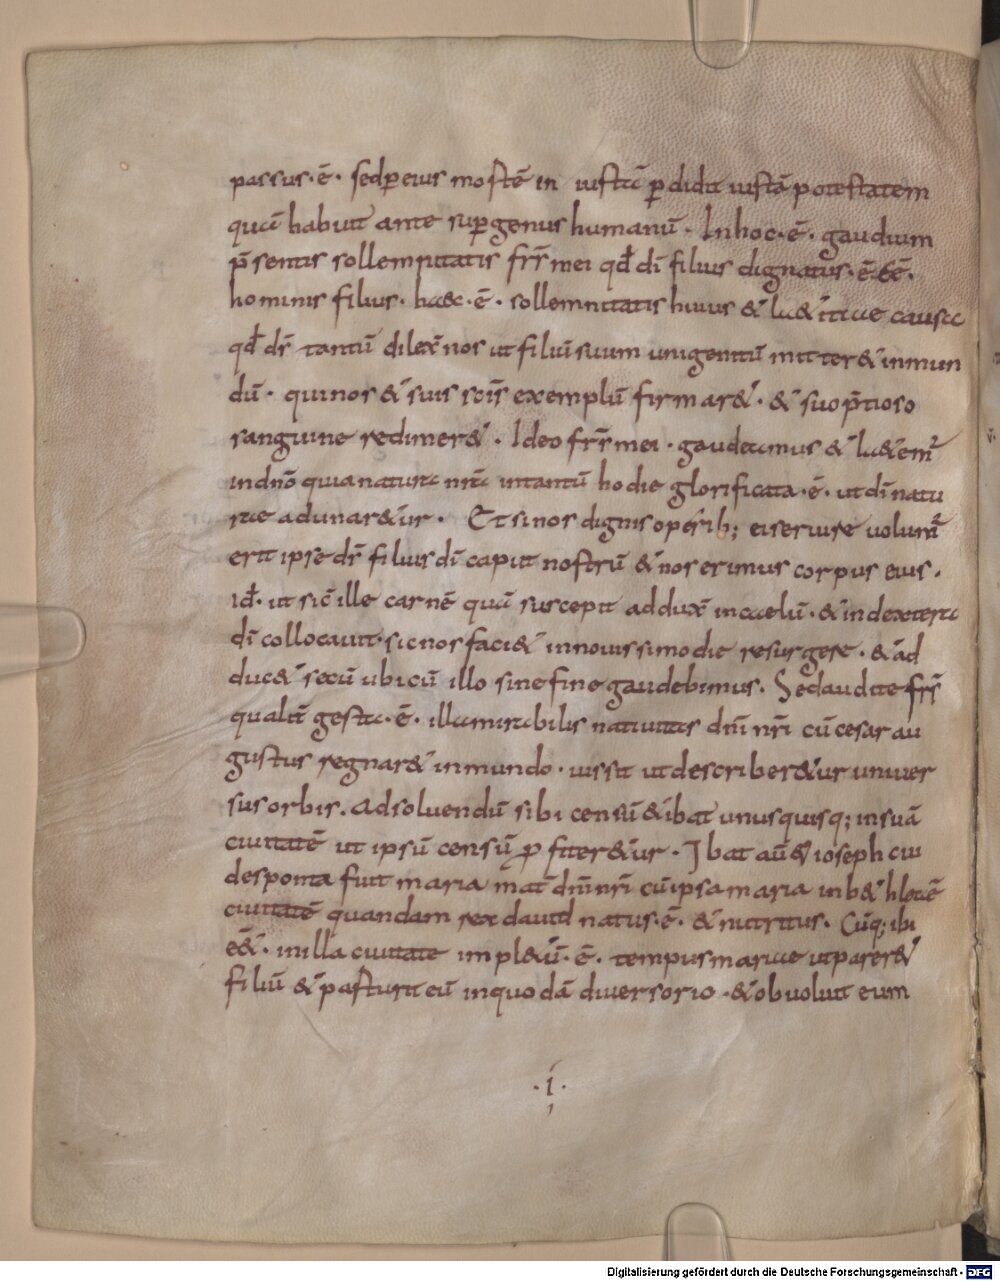 passus · ē · sed ꝑ eius mortē in iustā ꝑdidit iustā potestatem
quā habuit ante suꝑ genus humanū · In hoc · ē · gaudium
p̄sentis sollempnitatis frs̄ mei qđ dī filius dignatus · ē · eē ·
hominis filius · haec · ē · sollemnitatis huius & l&itiae causa
qđ ds̄ tantū dilex̄ nos ut filiū suum unigenitū mitter& in mun
dū · qui nos & suis scīs exemplū firmar& · & suo p̄tioso
sanguine redimer& · Ideo frs̄ mei · gaudeamus & l&emr̄
in dnō quia natura nrā in tantū hodie glorificata · ē · ut dī natu
rae adunar&ur · Et si nos dignis operib; ei seruire uolumꝰ
erit ipse ds̄ filius dī caput nostrū & nos erimus corpus eius ·
id · ut sic̄ ille carnē quā suscepit addux̄ in caelū · & in dextera
dī collocauit · sic nos faci& in nouissimo die resurgere · & ad
duc& secū ubi cū illo sine fine gaudebimus · Sed audite frs̄
qualit̄ gesta · ē · illa mirabilis natiuitas dn̄i nr̄i cū cesar au
gustus regnar& in mundo · iussit ut describer&ur uniuer
sus orbis. Ad soluendū sibi censū & ibat unusquisq; in suā
ciuitatē ut ipsū censū ꝓfiter&ur · Ibat aū & ioseph cui
desponta fuit maria mat̄ dn̄i nr̄i cū ipsa maria in b&hleē
ciuitatē quandam rex dauid natus · ē · & nutritus · Cūq; ibi
e&̄ · in illa ciuitate impl&ū · ē · tempus mariae ut parer&
filiū & pasturit eū in quodā diuersorio · & obuoluit eum
· i ·
Digitalisierung gefördert durch die Deutsche Forschungsgemeinschaft - DFG